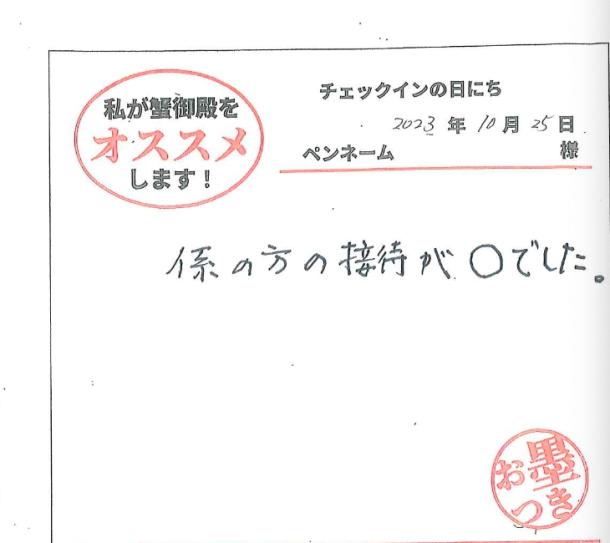 私が蟹御殿を
オススメ
します！
チェックインの日にち
2023 年 10 月 25 日
ペンネーム 様
係の方の接待が〇でした。
お墨
つき